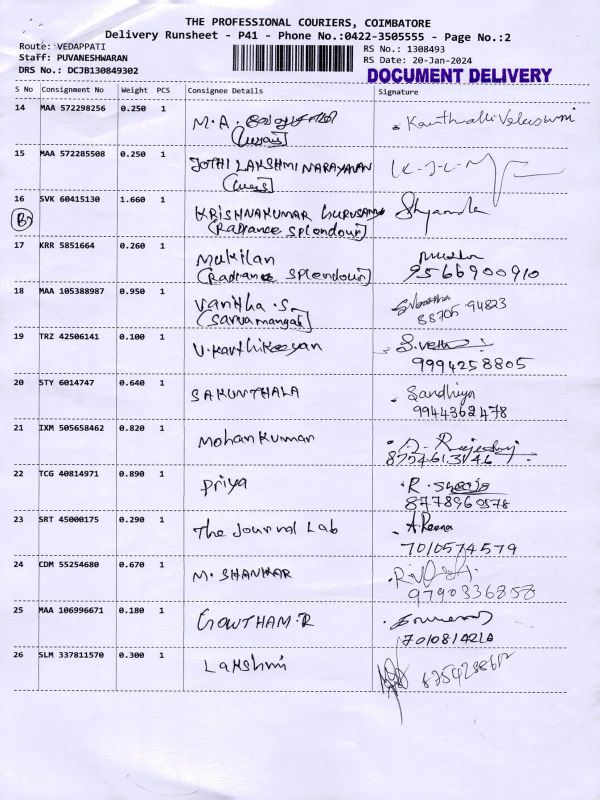 THE PROFESSIONAL COURIERS, COIMBATORE
Delivery Runsheet - P41 - Phone No.:0422-3505555 - Page No.:2
Route: VEDAPPATI
RS No.: 1308493
Staff: PUVANESHWARAN
RS Date: 20-Jan-2024
DRS No.: DCJB130849302
DOCUMENT DELIVERY
S No Consignment No Weight PCS Consignee Details Signature
14 MAA 572298256 0.250 1 M.A.
15 MAA 572285508 0.250 1 JOTHI LAKSHMI NARAYANAN
16 SVK 60415130 1.660 1 KRISHNAKUMAR GURUSAMY Shyamala
(Radiance Splendour)
17 KRR 5851664 0.260 1 Mukilan
(Radiance Splendour) 9566900910
18 MAA 105388987 0.950 1 Vanitha .S
(Sarvamangal) 88705 94823
19 TRZ 42506141 0.100 1 V.Karthikeeyan
9994258805
20 STY 6014747 0.640 1 SAKUNTHALA Sandhiya
9944362478
21 IXM 505658462 0.820 1 Mohan Kumar
22 TCG 40814971 0.890 1 Priya
23 SRT 45000175 0.290 1 The Journal Lab A.Reena
7010574579
24 CDM 55254680 0.670 1 M. SHANKAR
9790336858
25 MAA 106996671 0.180 1 GOWTHAM.R
26 SLM 337811570 0.300 1 Lakshmi